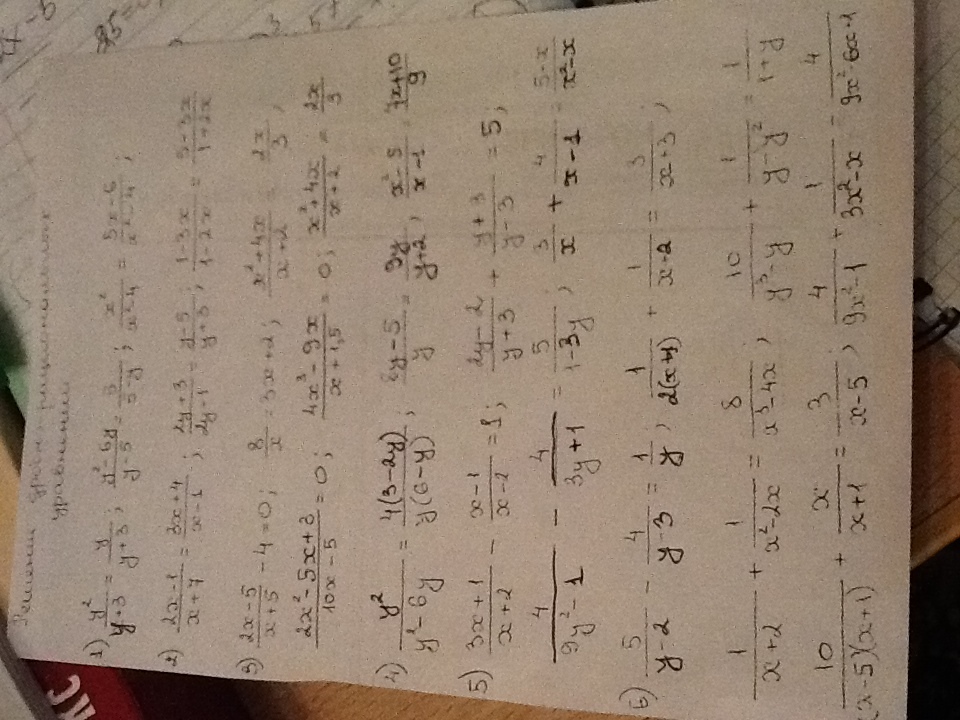 Решение дробно-рациональных
уравнений
1) y²/(y+3) = y/(y+3); (y²-6y)/(y-5) = 5/(5-y); x²/(x²-4) = (5x-6)/(x²-4);
2) (2x-1)/(x+7) = (3x+4)/(x-1); (2y+3)/(2y-1) = (y-5)/(y+3); (1-3x)/(1-2x) = (5-3x)/(1+2x)
3) (2x-5)/(x+5) - 4 = 0; 8/x = 3x+2; (x²+4x)/(x+2) = 2x/3;
(2x²-5x+3)/(10x-5) = 0; (4x³-9x)/(x+1,5) = 0; (x²+4x)/(x+2) = 2x/3
4) y²/(y²-6y) = 4(3-2y)/(y(6-y)); (8y-5)/y = 9y/(y+2); (x²-5)/(x-1) = (7x+10)/9
5) (3x+1)/(x+2) - (x-1)/(x-2) = 1; (2y-2)/(y+3) + (y+3)/(y-3) = 5;
4/(9y²-1) - 4/(3y+1) = 5/(1-3y); 3/x + 4/(x-1) = (5-x)/(x²-x)
6) 5/(y-2) - 4/(y-3) = 1/y; 1/(2(x+1)) + 1/(x+2) = 3/(x+3);
1/(x+2) + 1/(x²-2x) = 8/(x³-4x); 10/(y³-y) + 1/(y-y²) = 1/(1+y)
10/((x-5)(x+1)) + x/(x+1) = 3/(x-5); 4/(9x²-1) + 1/(3x²-x) = 4/(9x²-6x+1)
КС